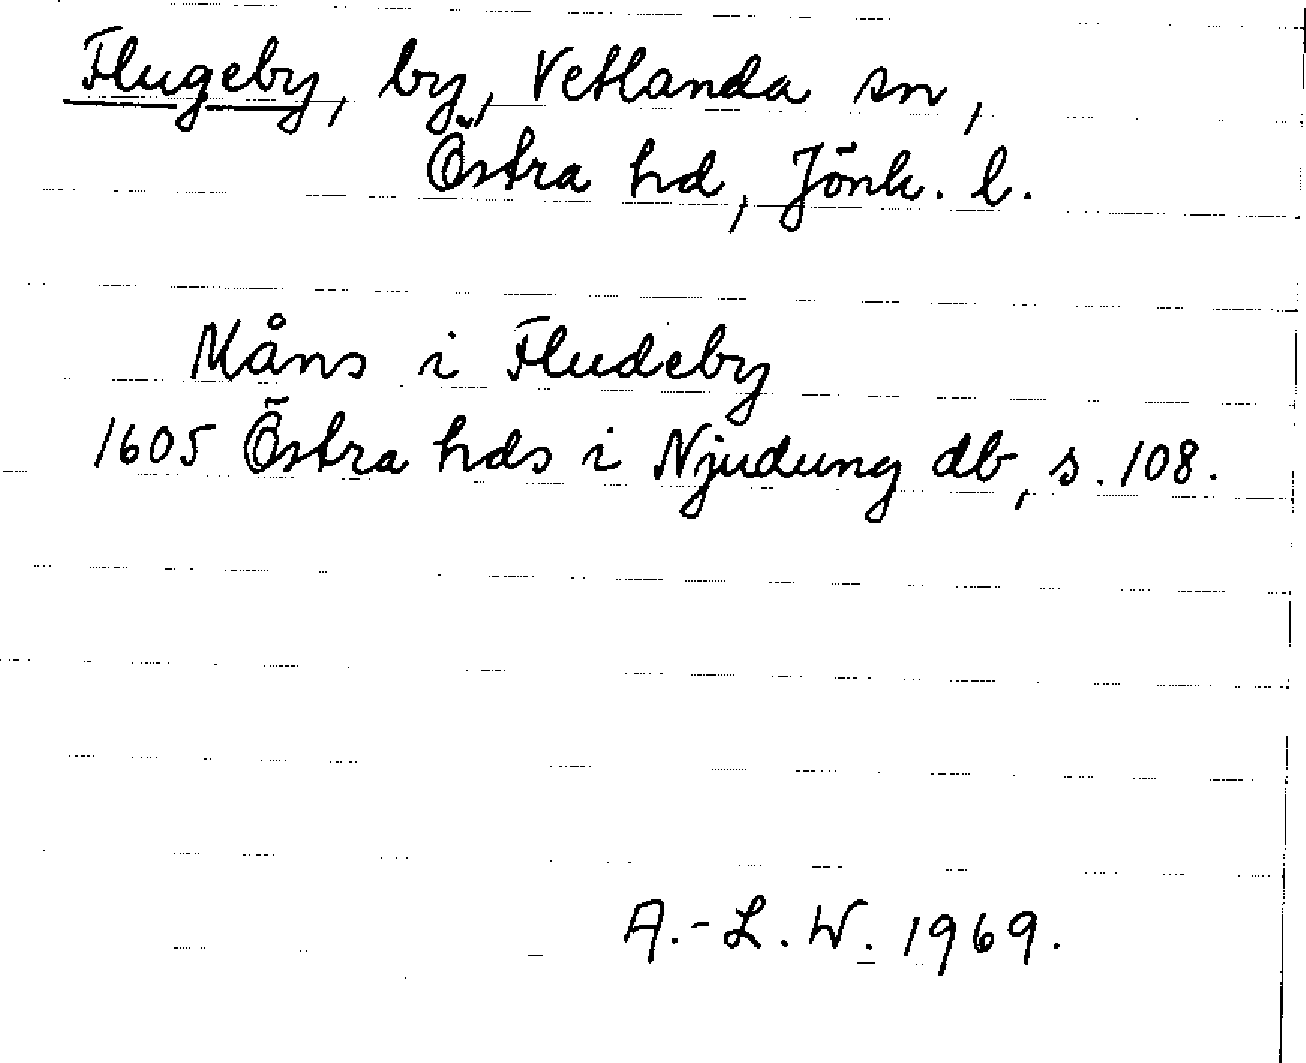 Flugeby, by, Vetlanda sn,
Östra hd, Jönk. l.
Måns i Fludeby
1605 Östra hds i Njudung db, s. 108.
A.-L. W. 1969.